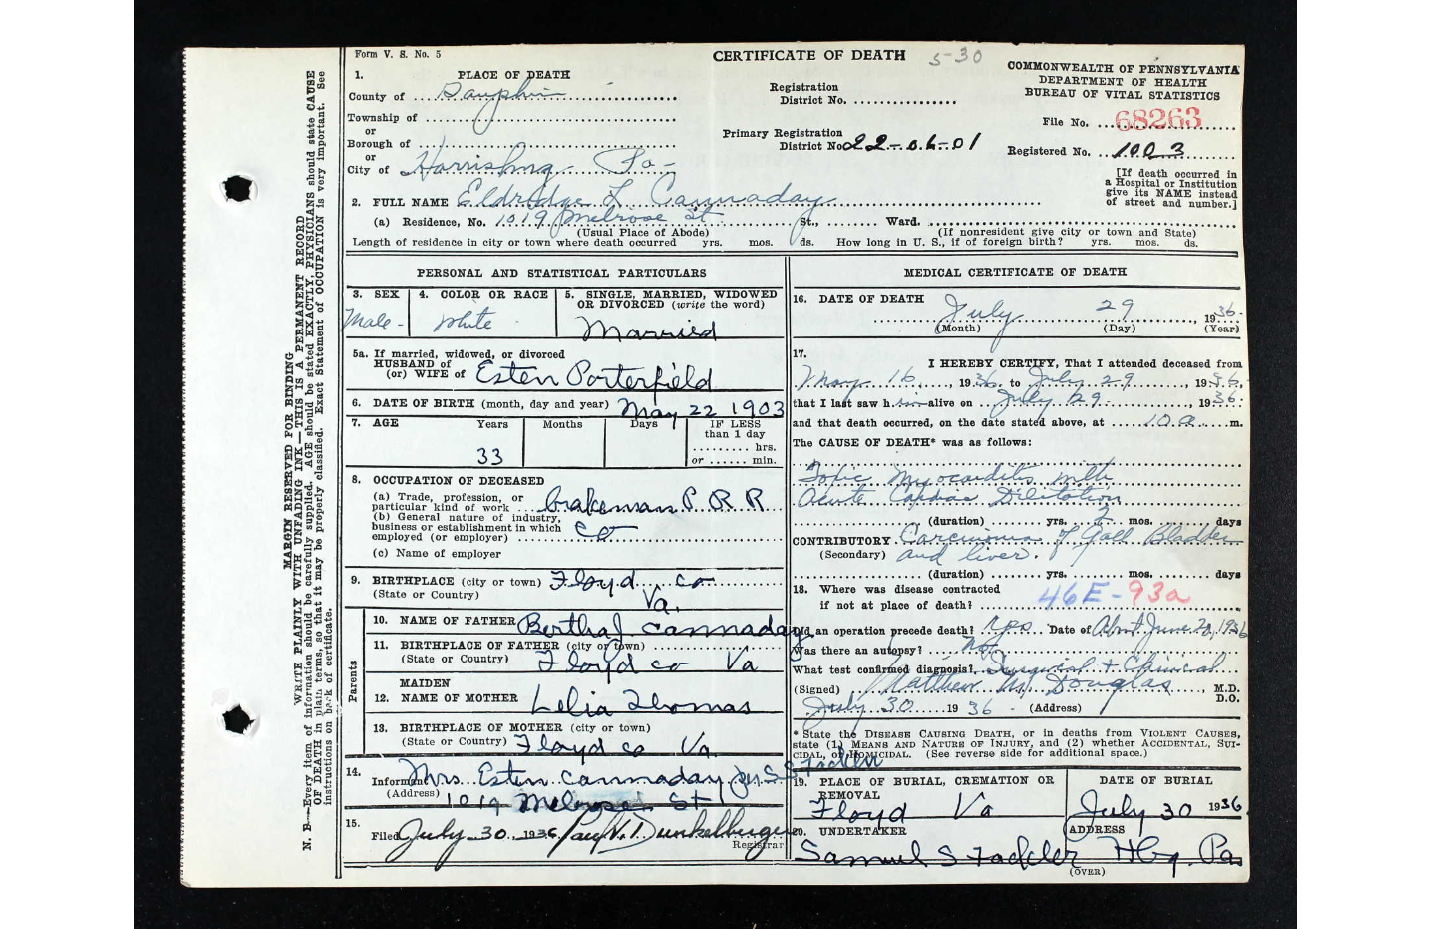 Form V. S. No. 5
CERTIFICATE OF DEATH
5-30
COMMONWEALTH OF PENNSYLVANIA
DEPARTMENT OF HEALTH
BUREAU OF VITAL STATISTICS
1. PLACE OF DEATH
County of Dauphin
Township of
or
Borough of
or
City of Harrisburg Pa-
Registration
District No.
Primary Registration
District No 22-06-01
File No. 68263
Registered No. 1003
[If death occurred in
a Hospital or Institution
give its NAME instead
of street and number.]
2. FULL NAME Eldridge L Cannaday
(a) Residence, No. 1019 Melrose St St., Ward.
(Usual Place of Abode) (If nonresident give city or town and State)
Length of residence in city or town where death occurred yrs. mos. ds. How long in U. S., if of foreign birth? yrs. mos. ds.
PERSONAL AND STATISTICAL PARTICULARS
3. SEX 4. COLOR OR RACE 5. SINGLE, MARRIED, WIDOWED
OR DIVORCED (write the word)
Male - White Married
5a. If married, widowed, or divorced
HUSBAND of
(or) WIFE of Esten Porterfield
6. DATE OF BIRTH (month, day and year) May 22 1903
7. AGE Years Months Days IF LESS
than 1 day
hrs.
or min.
33
8. OCCUPATION OF DECEASED
(a) Trade, profession, or
particular kind of work brakeman P. R R
(b) General nature of industry,
business or establishment in which
employed (or employer) Co
(c) Name of employer
9. BIRTHPLACE (city or town) Floyd co
(State or Country) Va.
Parents
10. NAME OF FATHER Bertha J Cannaday
11. BIRTHPLACE OF FATHER (city or town)
(State or Country) Floyd co Va
12. MAIDEN NAME OF MOTHER Lelia Thomas
13. BIRTHPLACE OF MOTHER (city or town)
(State or Country) Floyd co Va
14. Informant Mrs. Esten Cannaday by S S Fackler
(Address) 1019 Melrose St
15. Filed July 30, 1936 Paul N. Dunkelberger
Registrar
MEDICAL CERTIFICATE OF DEATH
16. DATE OF DEATH July 29 1936
(Month) (Day) (Year)
17. I HEREBY CERTIFY, That I attended deceased from
May 16, 1936 to July 29, 1936
that I last saw him alive on July 29 1936
and that death occurred, on the date stated above, at 10 a m.
The CAUSE OF DEATH* was as follows:
Toxic Myocarditis with
Acute Cardiac Dilitation
(duration) yrs. 2 mos. days
CONTRIBUTORY Carcinoma of Gall Bladder
(Secondary) and liver.
(duration) yrs. mos. days
18. Where was disease contracted
if not at place of death? 46E-93a
Did an operation precede death? yes Date of About June 20, 1936
Was there an autopsy? no
What test confirmed diagnosis? Surgical + Clinical
(Signed) Matthew M. Douglas, M.D.
D.O.
July 30 1936 - (Address)
* State the DISEASE CAUSING DEATH, or in deaths from VIOLENT CAUSES,
state (1) MEANS AND NATURE OF INJURY, and (2) whether ACCIDENTAL, SUI-
CIDAL, or HOMICIDAL. (See reverse side for additional space.)
19. PLACE OF BURIAL, CREMATION OR
REMOVAL
Floyd Va
DATE OF BURIAL
July 30 1936
20. UNDERTAKER
Samuel S Fackler
ADDRESS
Hbg. Pa
(OVER)
MARGIN RESERVED FOR BINDING
WRITE PLAINLY WITH UNFADING INK—THIS IS A PERMANENT RECORD
N. B.—Every item of information should be carefully supplied. AGE should be stated EXACTLY. PHYSICIANS should state CAUSE
OF DEATH in plain terms, so that it may be properly classified. Exact Statement of OCCUPATION is very important. See
instructions on back of certificate.